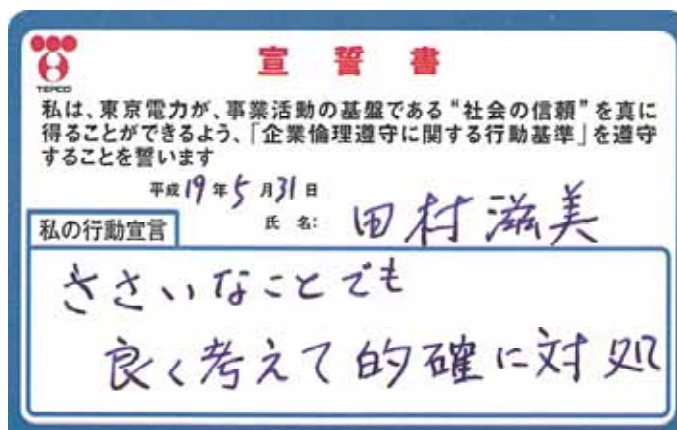 TEPCO
宣誓書
私は、東京電力が、事業活動の基盤である“社会の信頼”を真に
得ることができるよう、「企業倫理遵守に関する行動基準」を遵守
することを誓います
平成19年5月31日
氏 名: 田村滋美
私の行動宣言
ささいなことでも
良く考えて的確に対処